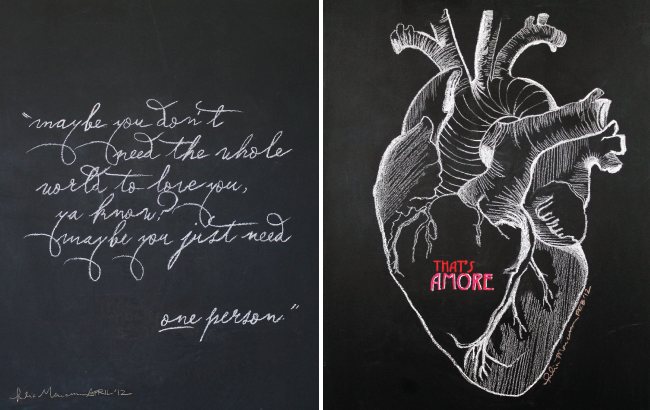 "maybe you don't
need the whole
world to love you,
ya know?
maybe you just need
one person"
APRIL '12
THAT'S
AMORE
FEB '12